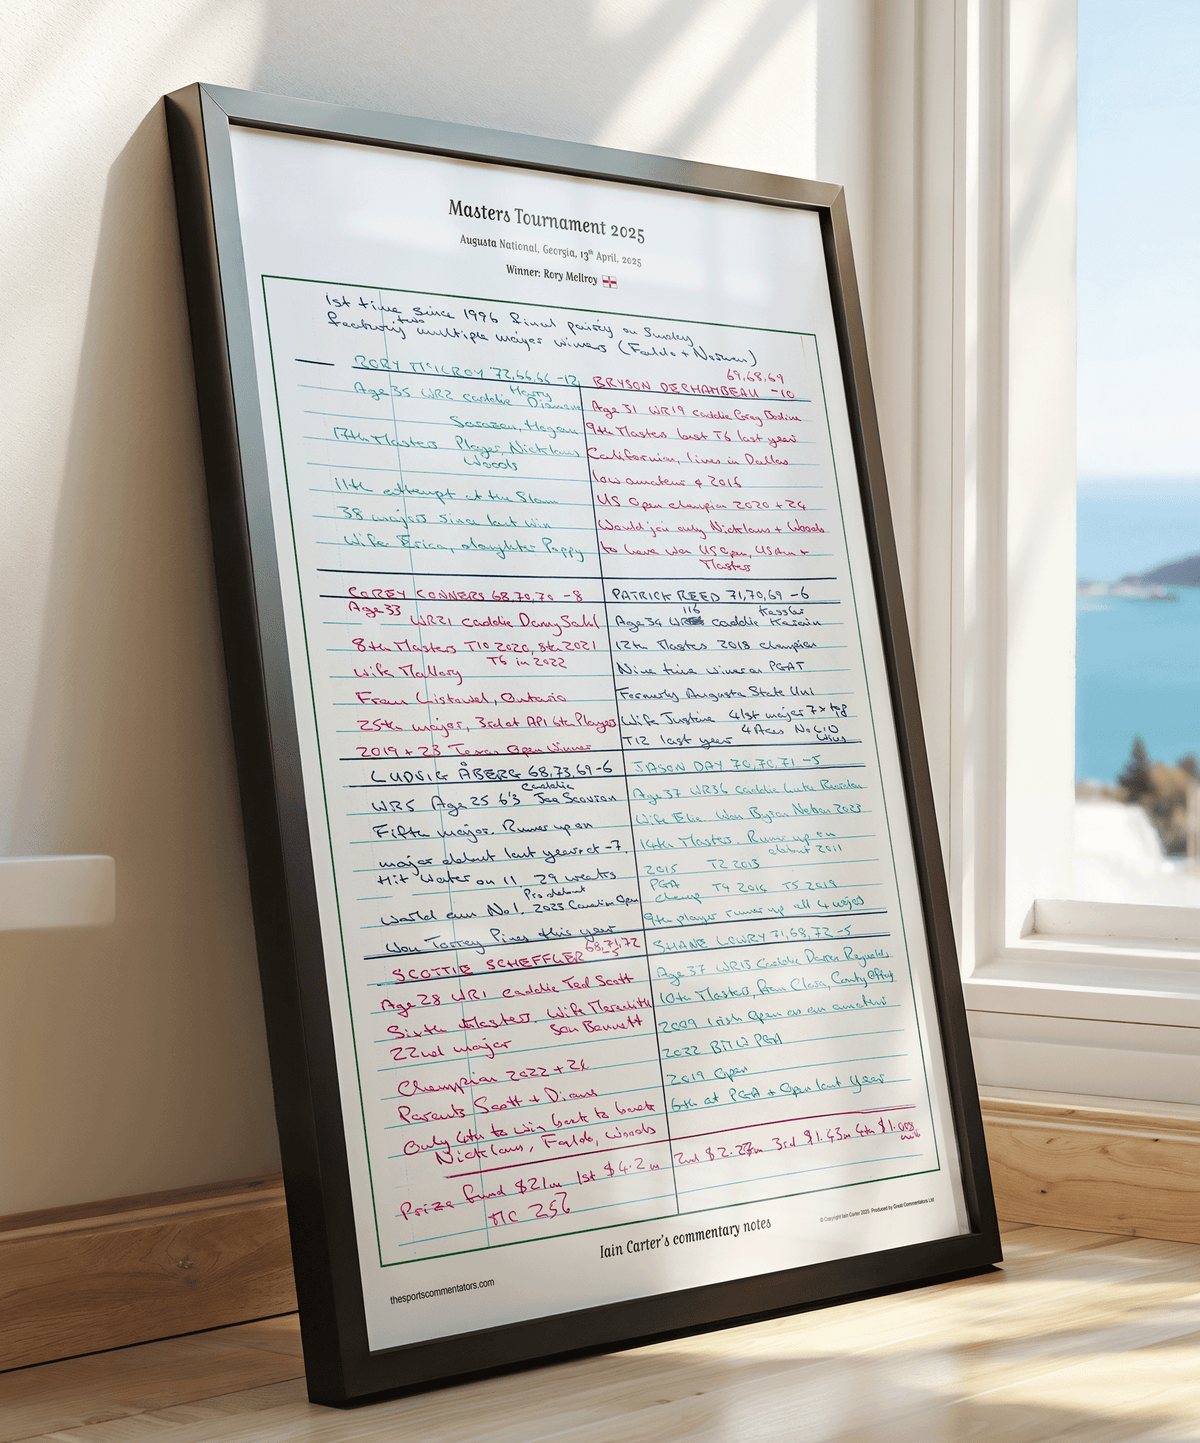 Masters Tournament 2025
Augusta National, Georgia, 13th April, 2025
Winner: Rory McIlroy
1st time since 1996 final pairing on Sunday
featuring two multiple major winners (Faldo + Norman)
RORY McILROY 72,66,66 -12
Age 35 WR2 caddie Harry Diamond
Sarazen, Hogan
17th Masters Player, Nicklaus
Woods
11th attempt at the Slam
38 majors since last win
Wife Erica, daughter Poppy
69,68,69
BRYSON DECHAMBEAU -10
Age 31 WR19 caddie Greg Bodine
9th Masters best T6 last year
Californian, lives in Dallas
low amateur 2016
US Open champion 2020 + 24
Would join only Nicklaus + Woods
to have won US Open, US Am +
Masters
COREY CONNERS 68,70,70 -8
Age 33
WR21 caddie Danny Sahl
8th Masters T10 2020, 8th 2021
T6 in 2022
Wife Mallory
From Listowel, Ontario
25th major, 3rd at API 6th Players
2019 + 23 Texas Open Winner
PATRICK REED 71,70,69 -6
116 Kessler
Age 34 WR caddie Karain
12th Masters 2018 champion
Nine time winner on PGAT
Formerly Augusta State Uni
Wife Justine 41st major 7 x top
T12 last year 4 Aces No LIV
wins
LUDVIG ÅBERG 68,73,69 -6
caddie
WR5 Age 25 6'3 Joe Scovron
Fifth major. Runner up on
major debut last year at -7.
Hit water on 11. 29 weeks
Pro debut
World am No1. 2023 Canadian Open
Won Torrey Pines this year
JASON DAY 70,70,71 -5
Age 37 WR36 caddie Luke Reardon
Wife Ellie Won Byron Nelson 2023
14th Masters. Runner up on
debut 2011
2015 T2 2013
PGA
champ T4 2016 T5 2019
9th player runner up all 4 majors
68,71,72
SCOTTIE SCHEFFLER -5
Age 28 WR1 caddie Ted Scott
Sixth Masters. Wife Meredith
Son Bennett
22nd major
Champion 2022 + 24
Parents Scott + Diane
Only 4th to win back to back
Nicklaus, Faldo, Woods
SHANE LOWRY 71,68,72 -5
Age 37 WR13 Caddie Darren Reynolds
10th Masters, from Clara, County Offaly
2009 Irish Open as an amateur
2022 BMW PGA
2019 Open
6th at PGA + Open last year
Prize fund $21m 1st $4.2m 2nd $2.27m 3rd $1.43m 4th $1.008
mil
MC 256
Iain Carter's commentary notes
© Copyright Iain Carter 2025. Produced by Great Commentators Ltd
thesportscommentators.com